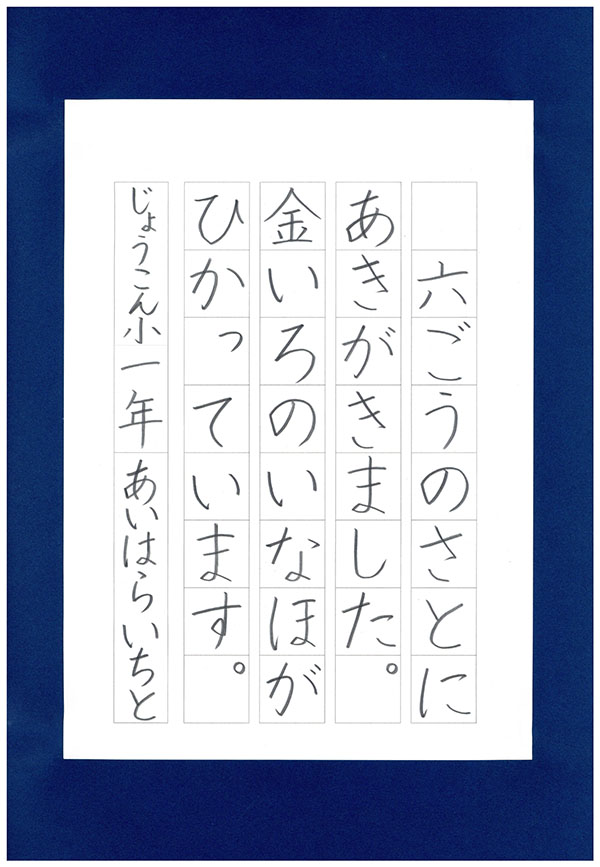 六ごうのさとに
あきがきました。
金いろのいなほが
ひかっています。
じょうこん小一年 あいはらいちと